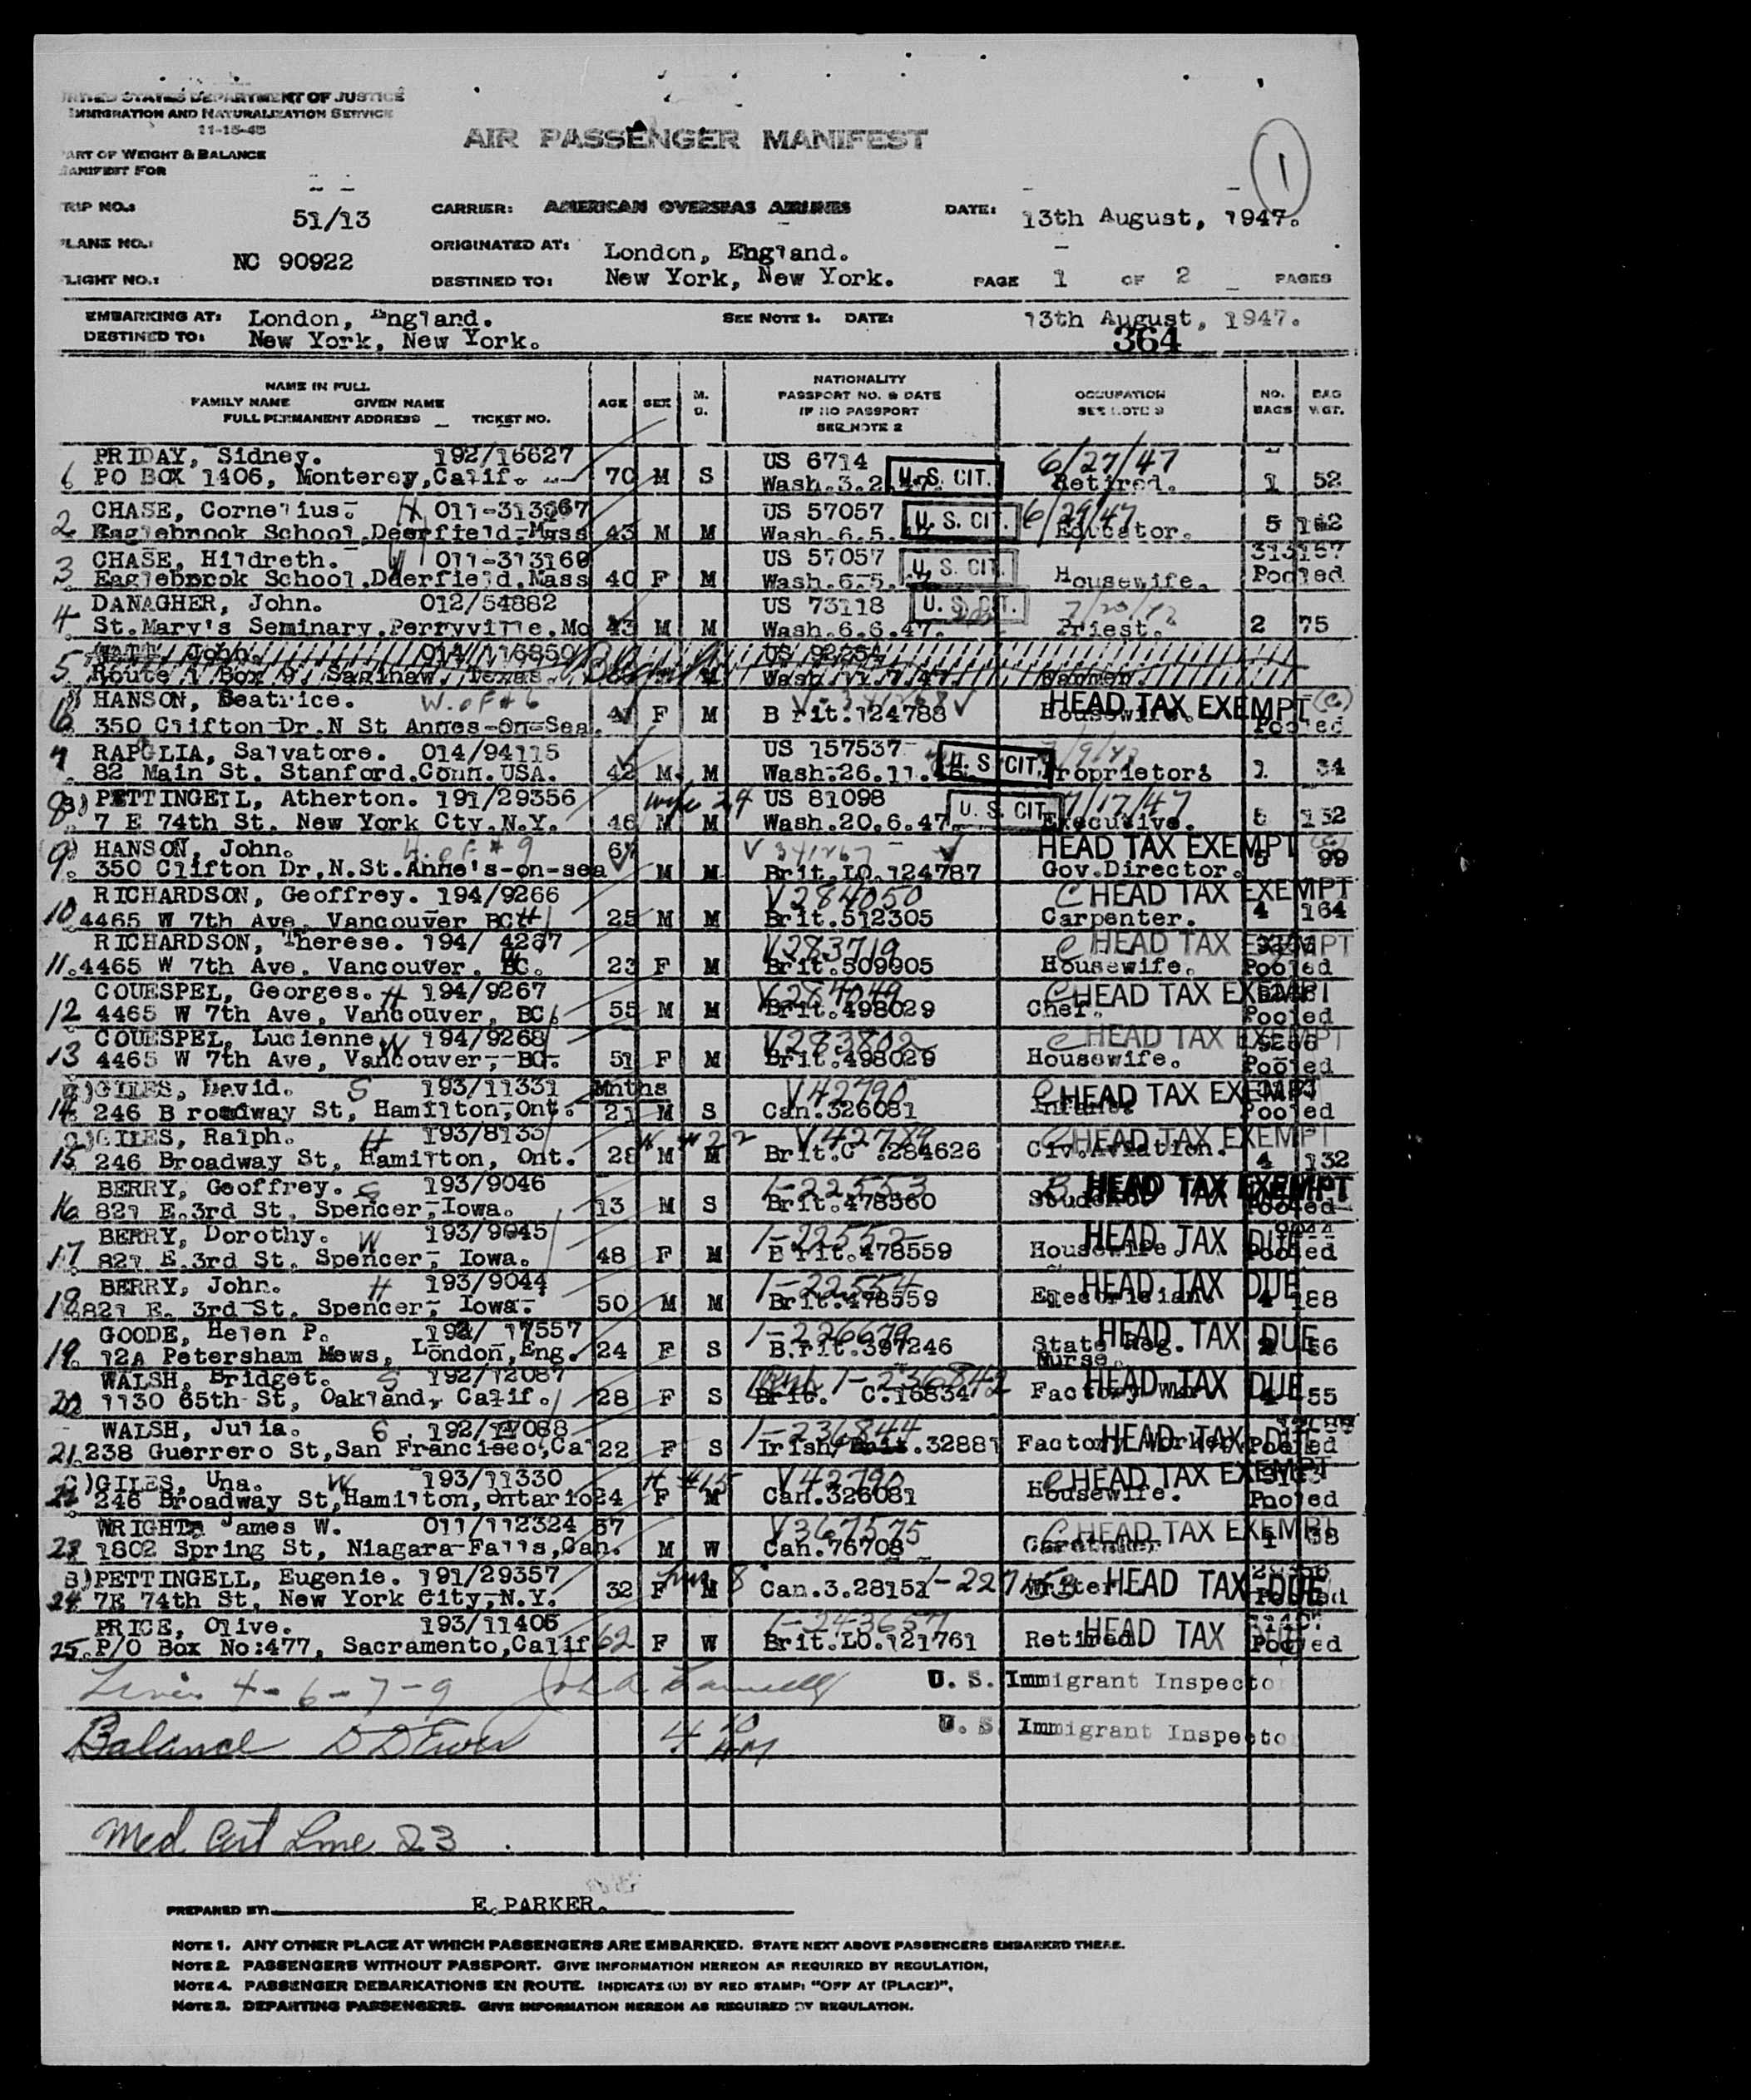 UNITED STATES DEPARTMENT OF JUSTICE
IMMIGRATION AND NATURALIZATION SERVICE
11-15-45
AIR PASSENGER MANIFEST
1
ART OF WEIGHT & BALANCE
ANIFEST FOR
RIP NO.: 51/13 CARRIER: AMERICAN OVERSEAS AIRLINES DATE: 13th August, 1947.
LANE NO.: NC 90922 ORIGINATED AT: London, England.
LIGHT NO.: DESTINED TO: New York, New York. PAGE 1 OF 2 PAGES
EMBARKING AT: London, England. SEE NOTE 1. DATE: 13th August, 1947.
DESTINED TO: New York, New York. 364
NAME IN FULL
FAMILY NAME GIVEN NAME
FULL PERMANENT ADDRESS TICKET NO.
AGE SEX
NATIONALITY
PASSPORT NO. & DATE
IF NO PASSPORT
SEE NOTE 2
OCCUPATION
NO. BAGS
BAG WGT.
PRIDAY, Sidney. 192/16627 US 6714 6/27/47
PO BOX 1406, Monterey,Calif. 70 M S Wash.3.2. U.S. CIT. Retired. 1 52
CHASE, Cornelius. H 011-313267 US 57057 U.S. CIT. 6/29/47
2 Eaglebrook School,Deerfield-Mass 43 M M Wash.6.5. Educator. 5 162
CHASE, Hildreth. W 011-313160 US 57057 U.S. CIT. 313167
3 Eaglebrook School,Deerfield.Mass 40 F M Wash.6-5. Housewife. Pooled
DANAGHER, John. 012/54882 US 73118 U.S. CIT.
4 St.Mary's Seminary,Perryville.Mo 43 M M Wash.6.6.47. Priest. 2 75
5 Route 1 Box 9, Saginaw, Texas.
HANSON, Beatrice. W. of # 6 HEAD TAX EXEMPT (C)
6 350 Clifton Dr.N St Annes-On-Sea. F M Brit.124788 Housewife. Pooled
RAPOLIA, Salvatore. 014/94115 US 157537
7 82 Main St. Stanford.Conn.USA. 42 M. M Wash.26.11. U.S. CIT. Proprietor 34
8 PETTINGELL, Atherton. 191/29356 wife 24 US 81098 U.S. CIT. 7/17/47
7 E 74th St. New York Cty.N.Y. 46 M M Wash.20.6.47. Executive. 132
HANSON, John. H. of # 9 V 341267 HEAD TAX EXEMPT
9. 350 Clifton Dr,N.St.Anne's-on-sea M M Brit.LO.124787 Gov.Director. 99
RICHARDSON, Geoffrey. 194/9266 V284050 C HEAD TAX EXEMPT
10 4465 W 7th Ave, Vancouver BC H 25 M M Brit.512305 Carpenter. 4 164
RICHARDSON, Therese. 194/ 4267 V283719 C HEAD TAX EXEMPT
11. 4465 W 7th Ave, Vancouver. BC. 23 F M Brit.509905 Housewife. Pooled
COUESPEL, Georges. H 194/9267 V284049 C HEAD TAX EXEMPT
12 4465 W 7th Ave, Vancouver, BC. 55 M M Brit.498029 Chef. Pooled
COUESPEL, Lucienne W 194/9268 V283802 C HEAD TAX EXEMPT
13 4465 W 7th Ave, Vancouver, BC. 51 F M Brit.498029 Housewife. Pooled
GILES, David. S 193/11331 Mnths V42790 C HEAD TAX EXEMPT
14. 246 Broadway St, Hamilton, Ont. 21 M S Can.326081 Infant. Pooled
GILES, Ralph. H 193/8133 W # 22 V42789 C HEAD TAX EXEMPT
15 246 Broadway St, Hamilton, Ont. 28 M M Brit.C .284626 Civ.Aviation. 4 132
BERRY, Geoffrey. S 193/9046 1-22553 HEAD TAX EXEMPT
16 821 E.3rd St, Spencer, Iowa. 13 M S Brit.478560 Student Pooled
BERRY, Dorothy. W 193/9045 1-22552 HEAD TAX DUE
17 821 E.3rd St. Spencer, Iowa. 48 F M Brit.478559 Housewife. Pooled
BERRY, John. H 193/9044 1-22554 HEAD TAX DUE
18 821 E. 3rd St. Spencer, Iowa. 50 M M Brit.478559 Electrician 4 188
GOODE, Helen P. 192/ 17557 1-226679 HEAD TAX DUE
19. 12A Petersham Mews, London,Eng. 24 F S B.rit.397246 State Reg. Nurse. 56
WALSH, Bridget. S 192/12087 1-236842 HEAD TAX DUE
20 1130 65th St, Oakland, Calif. 28 F S Brit. C.16834 Factory Wkr 55
WALSH, Julia. S 192/17088 1-236844 HEAD TAX DUE
21. 238 Guerrero St,San Francisco,Ca 22 F S Irish .32881 Factory Worker Pooled
GILES, Una. W 193/11330 H #15 V42790 C HEAD TAX EXEMPT
22 246 Broadway St,Hamilton,Ontario 24 F M Can.326081 Housewife. Pooled
WRIGHT, James W. 011/112324 67 V367575 C HEAD TAX EXEMPT
23 1802 Spring St, Niagara Falls,Can. M W Can.76708 1 38
PETTINGELL, Eugenie. 191/29357
24 7E 74th St, New York City,N.Y. 32 F M Can.3.28152 Writer HEAD TAX DUE Pooled
PRICE, Olive. 193/11405 1-243657
25. P/O Box No:477, Sacramento,Calif 62 F W Brit.LO.121761 Retired. HEAD TAX Pooled
Lines 4-6-7-9 U. S. Immigrant Inspecto
Balance 4 10 AM U. S Immigrant Inspecto
Med Cert Line 23
PREPARED BY: E. PARKER.
NOTE 1. ANY OTHER PLACE AT WHICH PASSENGERS ARE EMBARKED. STATE NEXT ABOVE PASSENGERS EMBARKED THERE.
NOTE 2. PASSENGERS WITHOUT PASSPORT. GIVE INFORMATION HEREON AS REQUIRED BY REGULATION,
NOTE 4. PASSENGER DEBARKATIONS EN ROUTE. INDICATE (D) BY RED STAMP: "OFF AT (PLACE)",
NOTE 3. DEPARTING PASSENGERS. GIVE INFORMATION HEREON AS REQUIRED BY REGULATION.